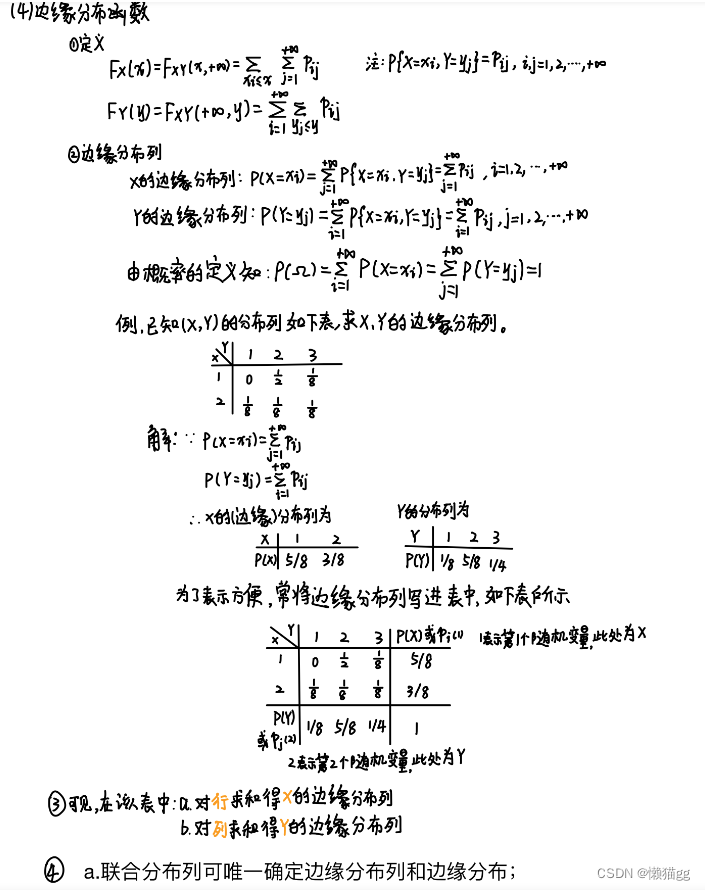 (4)边缘分布函数
①定义
Fx(x)=FxY(x,+∞)=∑_{xi≤x} ∑_{j=1}^{+∞} Pij 注:P{X=xi,Y=yj}=Pij, i,j=1,2,…,+∞
FY(y)=FxY(+∞,y)=∑_{i=1}^{+∞} ∑_{yj≤y} Pij
②边缘分布列
X的边缘分布列:P(X=xi)=∑_{j=1}^{+∞} P{X=xi,Y=yj}=∑_{j=1}^{+∞} Pij, i=1,2,…,+∞
Y的边缘分布列:P(Y=yj)=∑_{i=1}^{+∞} P{X=xi,Y=yj}=∑_{i=1}^{+∞} Pij, j=1,2,…,+∞
由概率的定义知:P(Ω)=∑_{i=1}^{+∞} P(X=xi)=∑_{j=1}^{+∞} P(Y=yj)=1
例,已知(X,Y)的分布列如下表,求X,Y的边缘分布列。
X\Y 1 2 3
1 0 1/2 1/8
2 1/8 1/8 1/8
解:∵P(X=xi)=∑_{j=1}^{+∞} Pij
P(Y=yj)=∑_{i=1}^{+∞} Pij
∴X的(边缘)分布列为 Y的分布列为
X 1 2 Y 1 2 3
P(X) 5/8 3/8 P(Y) 1/8 5/8 1/4
为了表示方便,常将边缘分布列写进表中,如下表所示
X\Y 1 2 3 P(X)或Pi(1) 1表示第1个随机变量,此处为X
1 0 1/2 1/8 5/8
2 1/8 1/8 1/8 3/8
P(Y)
或Pj(2) 1/8 5/8 1/4 1
2表示第2个随机变量,此处为Y
③可见,在该表中:a.对行求和得X的边缘分布列
b.对列求和得Y的边缘分布列
④ a.联合分布列可唯一确定边缘分布列和边缘分布;
CSDN @懒猫gg